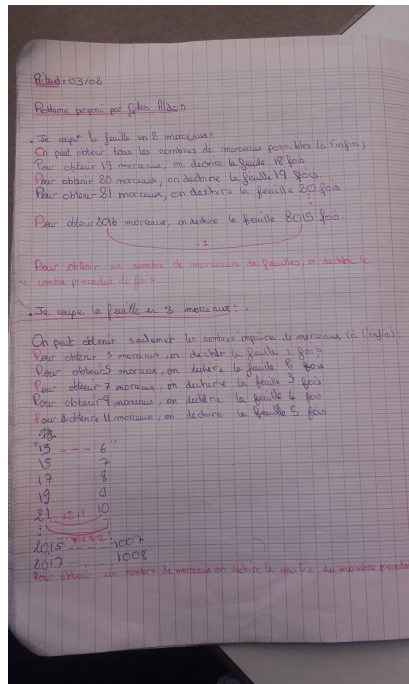 Rituel: 03/08
Problème proposé par Gilles Aldon
. Je coupe la feuille en 2 morceaux:
On peut obtenir tous les nombres de morceaux possibles (à l'infini)
Pour obtenir 19 morceaux, on déchire la feuille 18 fois
Pour obtenir 20 morceaux, on déchire la feuille 19 fois.
Pour obtenir 21 morceaux, on déchire la feuille 20 fois
Pour obtenir 2016 morceaux, on déchire la feuille 2015 fois.
-1
Pour obtenir un nombre de morceaux de feuilles, on déchire le
nombre précédent de fois
. Je coupe la feuille en 3 morceaux:
On peut obtenir seulement les nombres impairs de morceaux (à l'infini).
Pour obtenir 3 morceaux, on déchire la feuille 1 fois
Pour obtenir 5 morceaux, on déchire la feuille 2 fois
Pour obtenir 7 morceaux, on déchire la feuille 3 fois
Pour obtenir 9 morceaux, on déchire la feuille 4 fois
Pour obtenir 11 morceaux, on déchire la feuille 5 fois
"13 --- 6"
15 7
17 8
19 9
21 10
2015 ---- 1007
2017 1008
Pour obtenir un nombre de morceaux on déchire la moitié du nombre